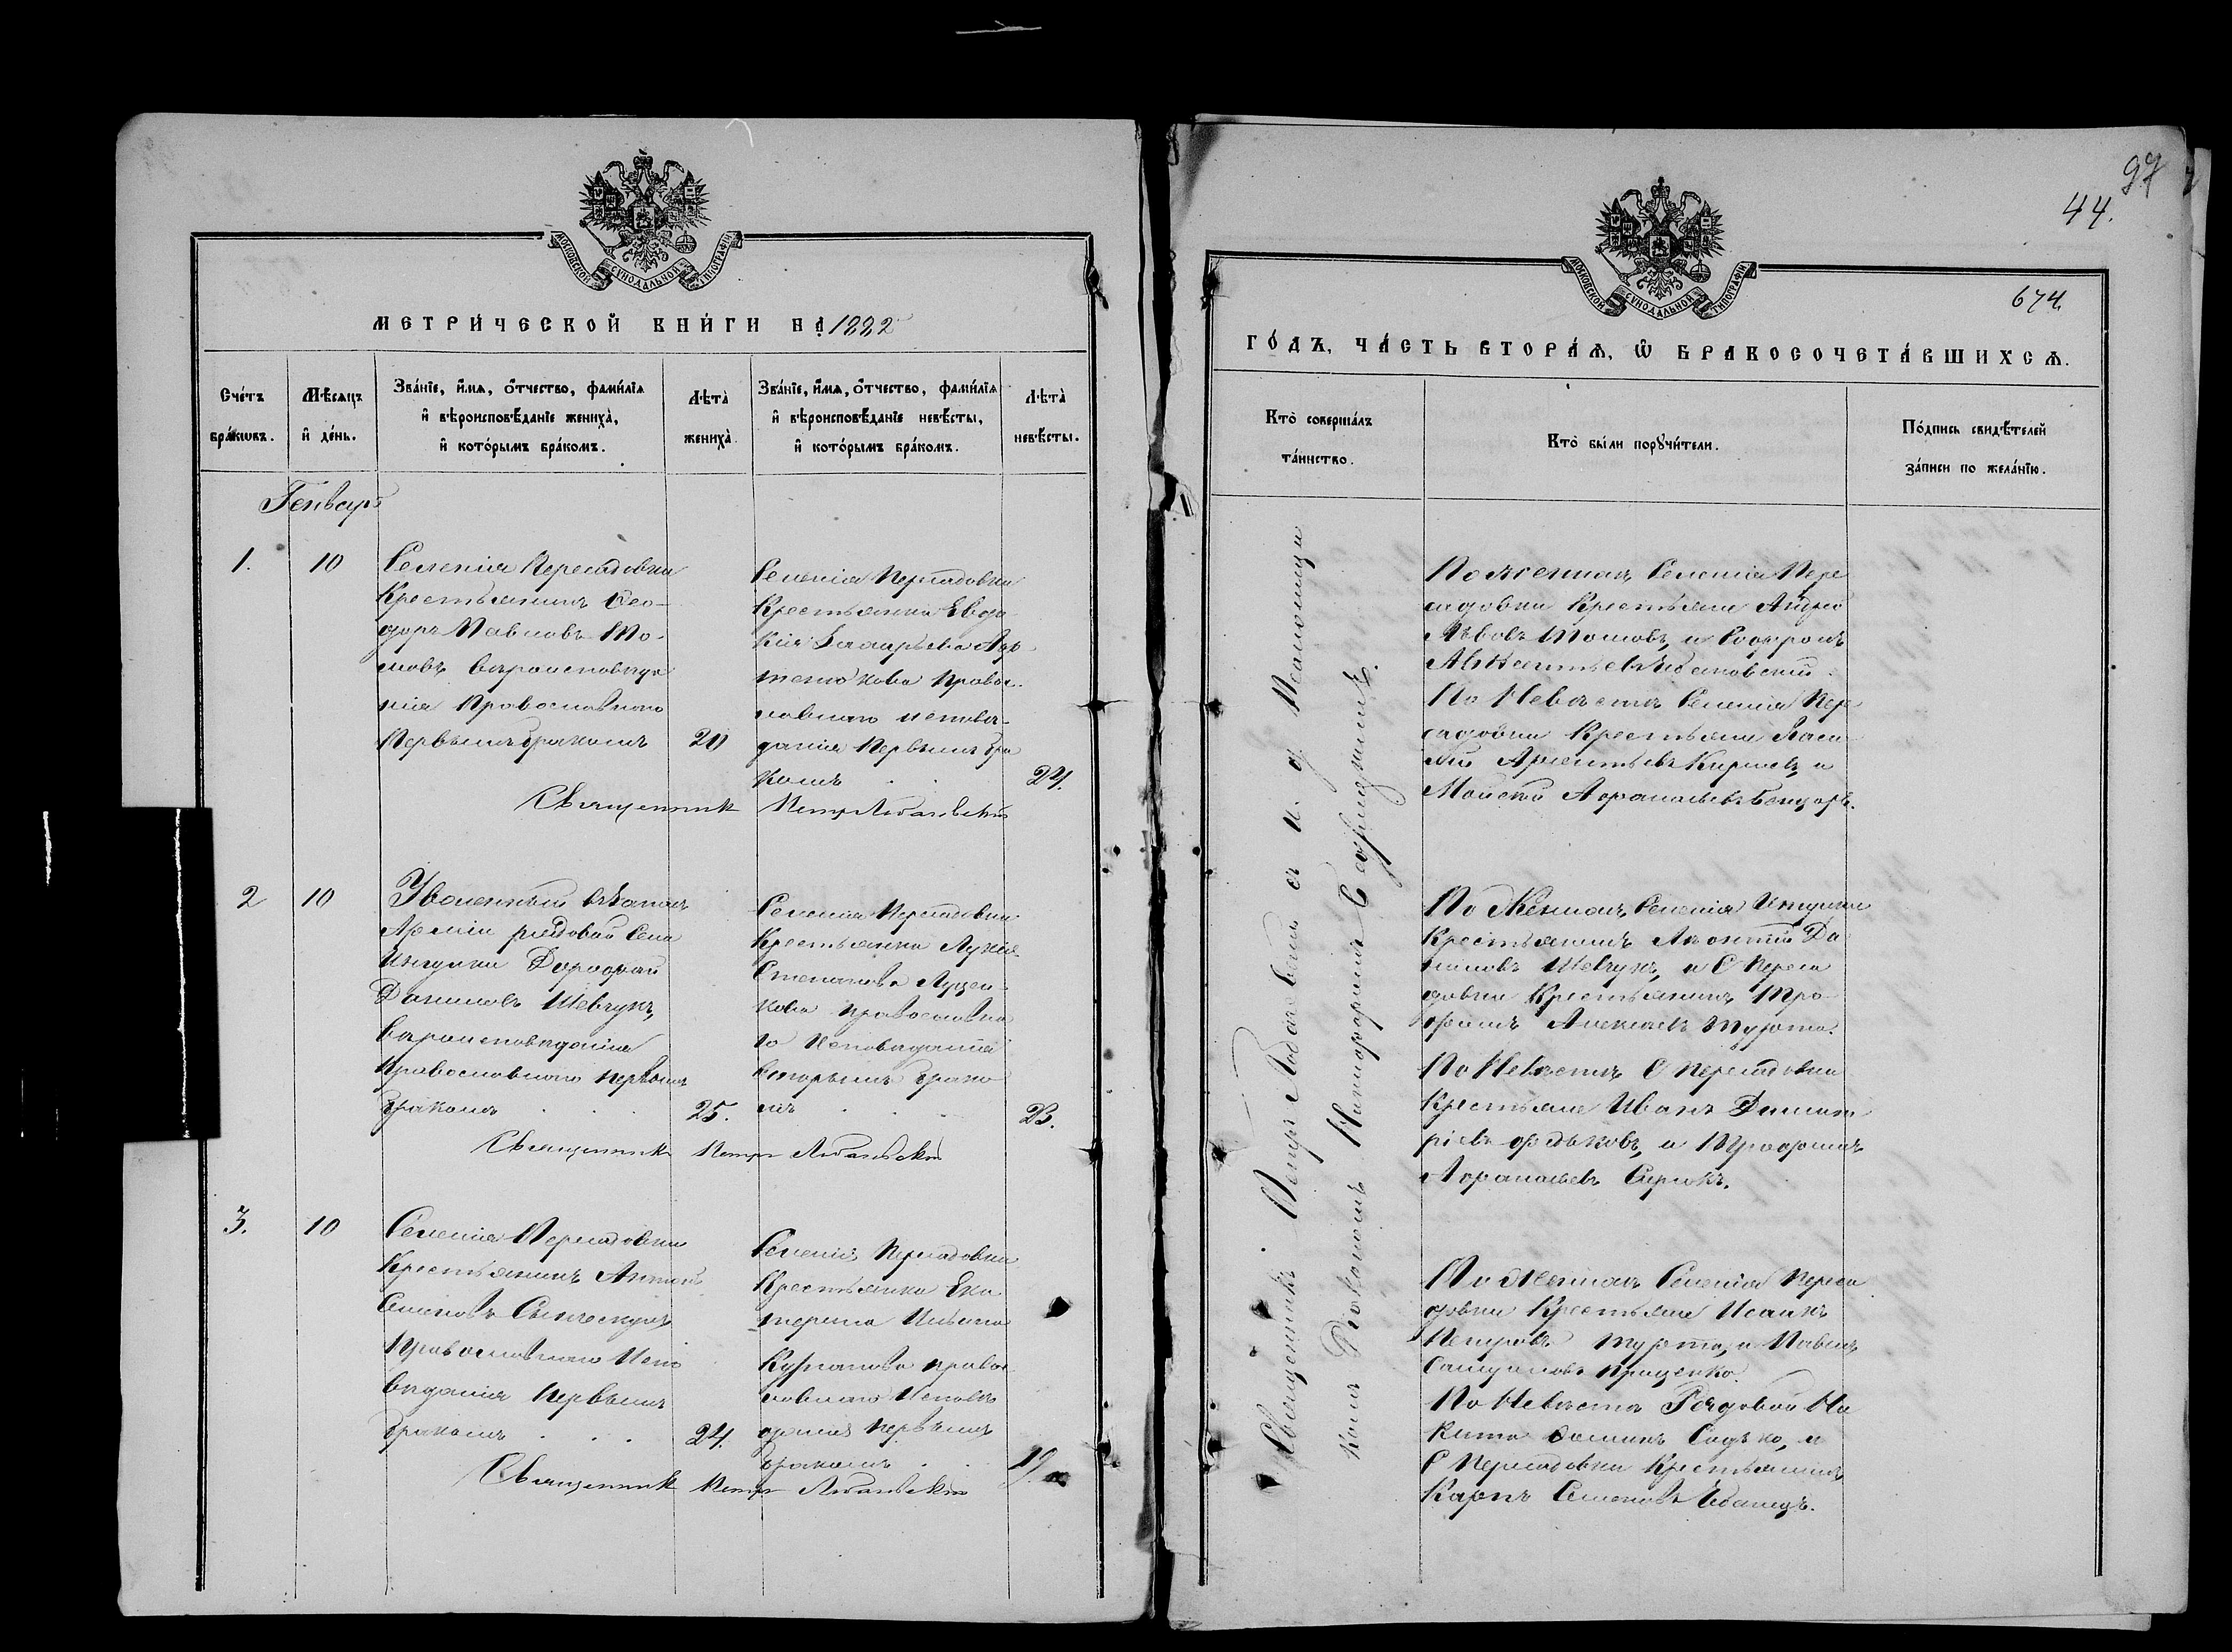 МОСКОВСКОЙ СУНОДАЛЬНОЙ ТИПОГРАФІИ
МЕТРИ́ЧЕСКОЙ КНИ́ГИ НА̀ 1882
Сче́тъ бра́кѡвъ.
Мѣ́сяцъ и҆ де́нь.
Зва́нїе, и҆́мѧ, ѻ҆́тчество, фами́лїѧ
и҆ вѣроисповѣ́данїе жениха̀,
и҆ кото́рымъ бра́комъ.
Лѣта̀
жениха̀.
Зва́нїе, и҆́мѧ, ѻ҆́тчество, фами́лїѧ
и҆ вѣроисповѣ́данїе невѣ́сты,
и҆ кото́рымъ бра́комъ.
Лѣта̀
невѣ́сты.
Генварь
1.
10
Селенія Пересадовки
Крестьянинъ Ѳео-
доръ Павловъ То-
мовъ вѣроисповѣда
нія Православнаго
Первымъ бракомъ
20
Селенія Пересадовки
Крестьянка Евдо
кія
Православнаго исповѣ-
данія Первымъ бра
комъ
24.
Священникъ Петръ Лобачевскій
2
10
Уволенный въ запасъ
Арміи рядовой Села
Ингулки Дорофей
Даниловъ Шевчукъ,
вѣроисповѣданія
Православнаго первымъ
бракомъ
25.
Селенія Пересадовки
Крестьянка
Степанова Луцен
кова православна
го исповѣданія
вторымъ брако
мъ
23.
Священникъ Петръ Лобачевскій
3.
10
Селенія Пересадовки
Крестьянинъ Антонъ
Семеновъ
Православнаго Испо
вѣданія Первымъ
бракомъ
24.
Селенія Пересадовки
Крестьянка Ека
терина
православнаго Исповѣ
данія первымъ
бракомъ
19.
Священникъ Петръ Лобачевскій
97
44.
674.
МОСКОВСКОЙ СУНОДАЛЬНОЙ ТИПОГРАФІИ
ГО́ДЪ, ЧА́СТЬ ВТОРА́Ѧ, Ѡ҆ БРАКОСОЧЕТА́ВШИХСѦ.
Кто̀ соверша́лъ
та́инство.
Кто̀ бы́ли порꙋчи́тели.
По́дпись свидѣ́телей
за́писи по жела́нїю.
Священникъ Петръ Лобачевскій съ и. д. Псаломщи
комъ Діакономъ Никифоромъ
По Женихѣ Селенія Пере
садовки Крестьяне Андрей
Львовъ Томовъ, и Софронъ
По Невѣстѣ Селенія Пере
садовки Крестьяне Васи
лій
Моисей Афанасьевъ Бондарь.
По Женихѣ Селенія Ингулки
Крестьянинъ Леонтій Да
ниловъ Шевчукъ, и С Переса
довки Крестьянинъ Тро
фимъ Алексѣевъ
По Невѣстѣ С Пересадовки
Крестьяне Иванъ Димит
ріевъ и Трофимъ
Афанасьевъ
По Женихѣ Селенія Переса
довки Крестьяне Исаакъ
Петровъ и Павелъ
По Невѣстѣ Рядовой Ни
кита Фоминъ Садъко, и
С Пересадовки Крестьянинъ
Карпъ Семеновъ